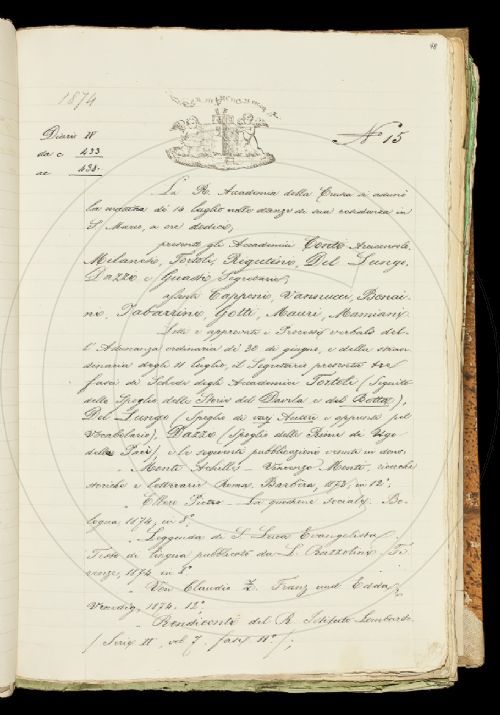 98
1874
Diario IV
da c. 433
ac 435
N° 15
La R. Accademia della Crusca si adunò
la mattina di 14 luglio nelle stanze di sua residenza in
S. Marco, a ore dodici,
presenti gli Accademici Conti Arciconsolo,
Milanesi, Tortoli, Rigutini, Del Lungo,
Dazzi e Guasti, Segretario;
assenti Capponi, Vannucci, Bonai-
ni, Tabarrini, Gotti, Mauri, Mamiani.
Letti e approvati i Processi verbali del-
l'Adunanza ordinaria di 30 di giugno, e della straor-
dinaria degli 11 luglio, il Segretario presenta tre
fasci di Schede degli Accademici Tortoli (Seguito
dello Spoglio delle Storie del Davila e del Botta),
Del Lungo (Spoglio di varj Autori e appunti pel
Vocabolario), Dazzi (Spoglio delle Rime de Ugo
delle Paci), e le seguenti pubblicazioni venute in dono.
" Monti Achille – Vincenzo Monti, ricerche
storiche e letterarie Roma, Barbèra, 1873, in 12°;
" Ellero Pietro – La quistione sociale. Bo-
logna 1874, in 8°;
" Leggenda di S. Luca Evangelista,
Testo di lingua pubblicato da L. Razzolini. Fi-
renze, 1874 in 8°
" Von Claudio Z. Franz und Edda,
Venedig, 1874. 12°;
" Rendiconti del R. Istituto Lombardo
(Serie II, vol 7. fasc 11°);